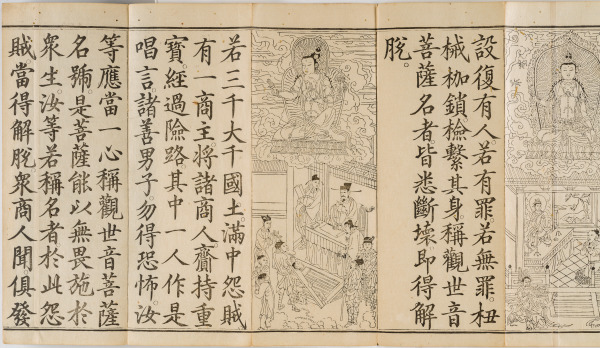 設復有人若有罪。若無罪。杻
械枷鎖。檢繫其身。稱觀世音
菩薩名者。皆悉斷壞。即得解
脫。
若三千大千國土。滿中怨賊
有一商主。將諸商人。齎持重
寶。經過險路。其中一人作是
唱言。諸善男子。勿得恐怖。汝
等應當一心稱觀世音菩薩
名號。是菩薩能以無畏施於
眾生。汝等若稱名者。於此怨
賊當得解脫。眾商人聞。俱發